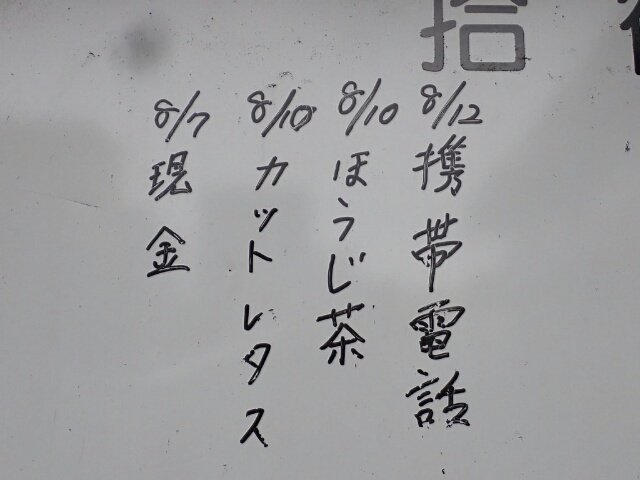 拾
8/12 携帯電話
8/10 ほうじ茶
8/10 カットレタス
8/7 現金